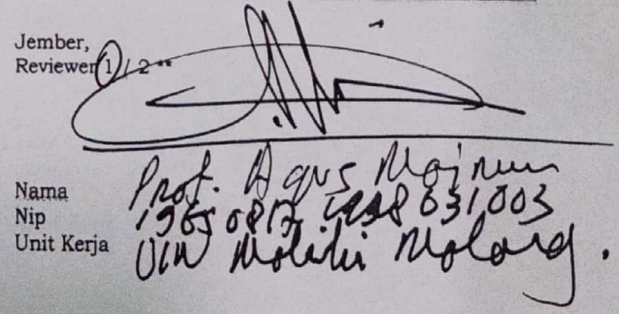 Jember,
Reviewer 1 / 2 **
Nama Prof. Agus Maimun
Nip 19650817 1998031003
Unit Kerja UIN Maliki Malang.